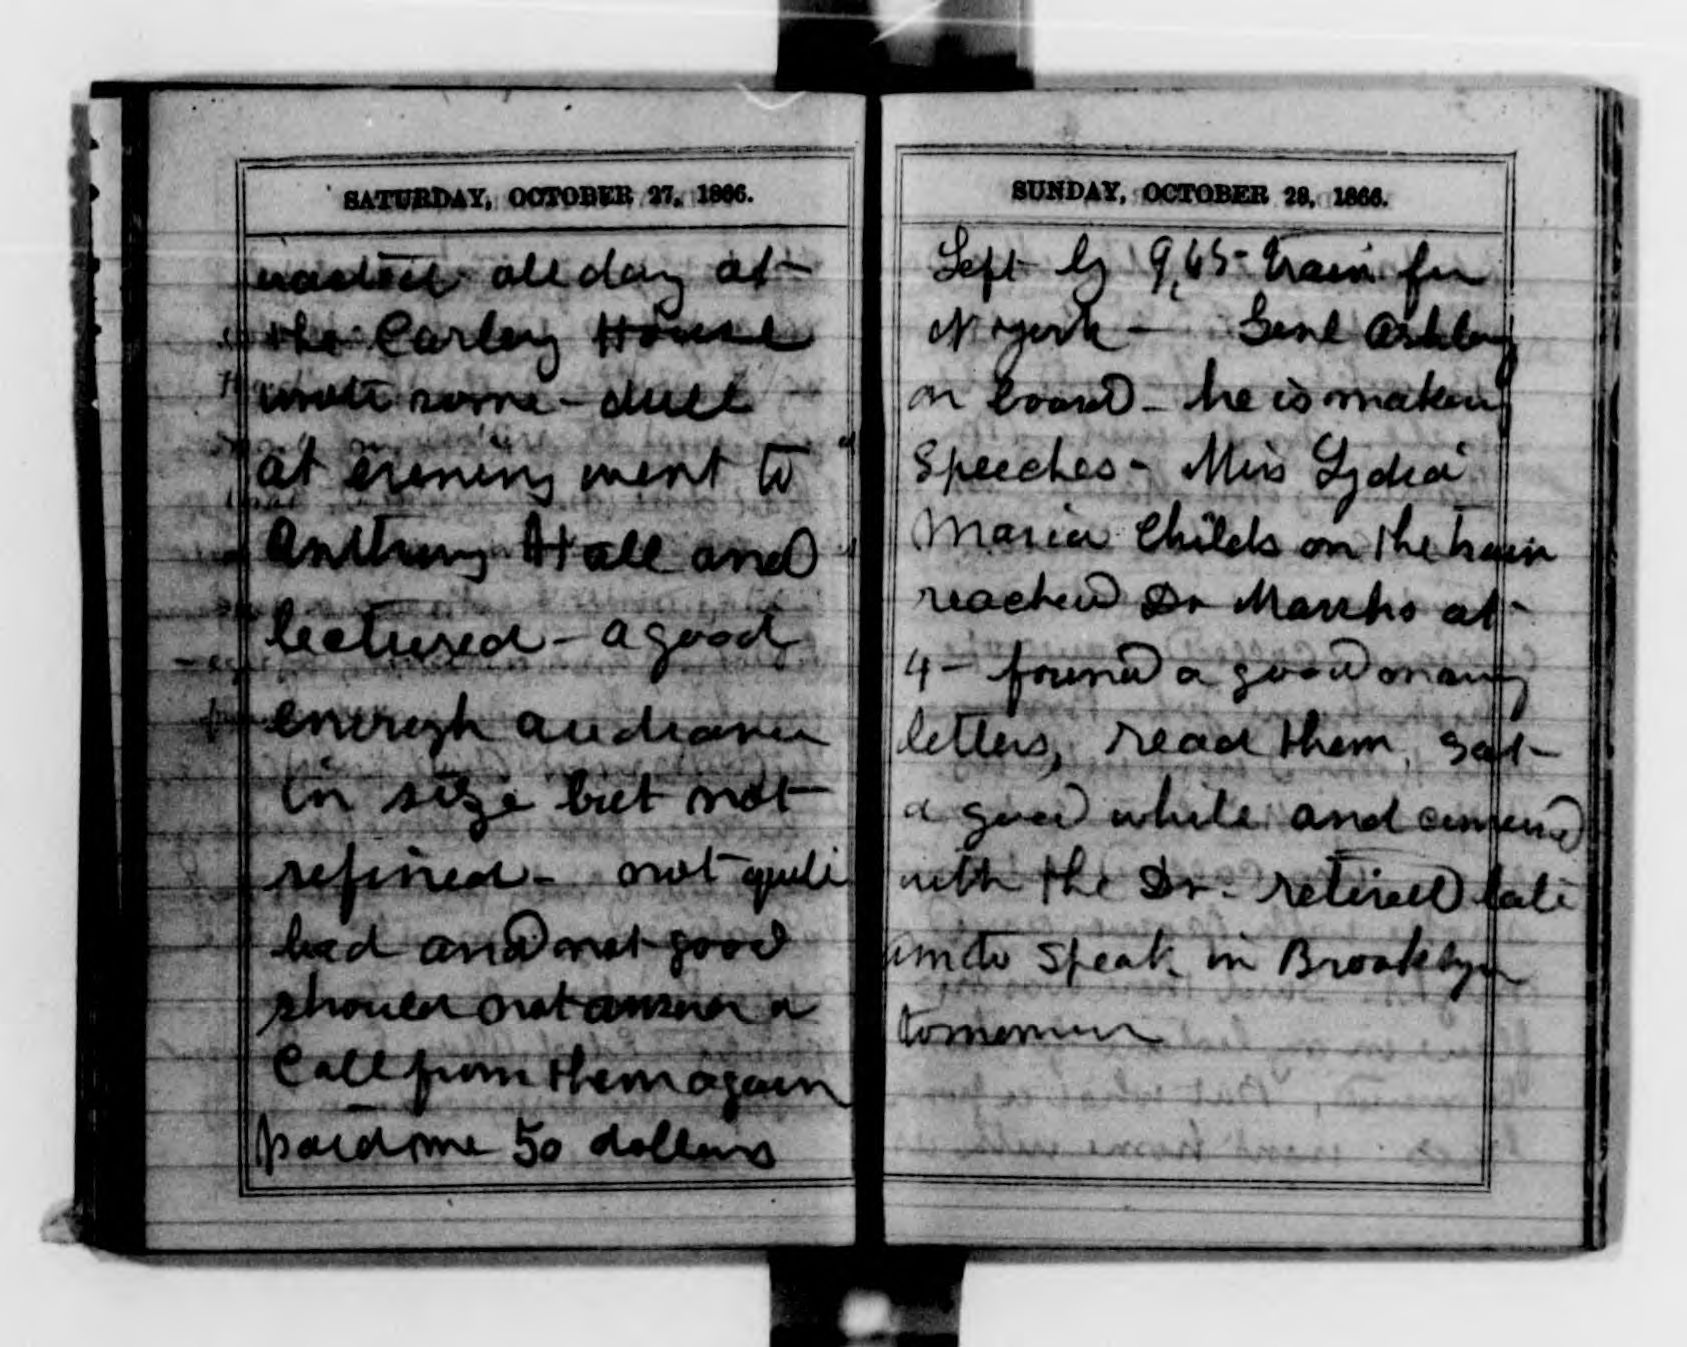 SATURDAY, OCTOBER 27, 1866.
waited all day at
the Corley House
wrote some - dull
at evening went to
Anthony Hall and
lectured - a good
enough audience
in size but not
refined - not quite
bad and not good
should not answer a
Call from them again
paid me 50 dollars
SUNDAY, OCTOBER 28, 1866.
Left by 9,45 train for
N York - Genl Ashley
on board - he is making
Speeches - Miss Lydia
Maria Childs on the train
reached Dr Marsh's at
4 - found a good many
letters, read them, sat
a good while and
with the Dr - retired late
am to speak in Brooklyn
tomorrow